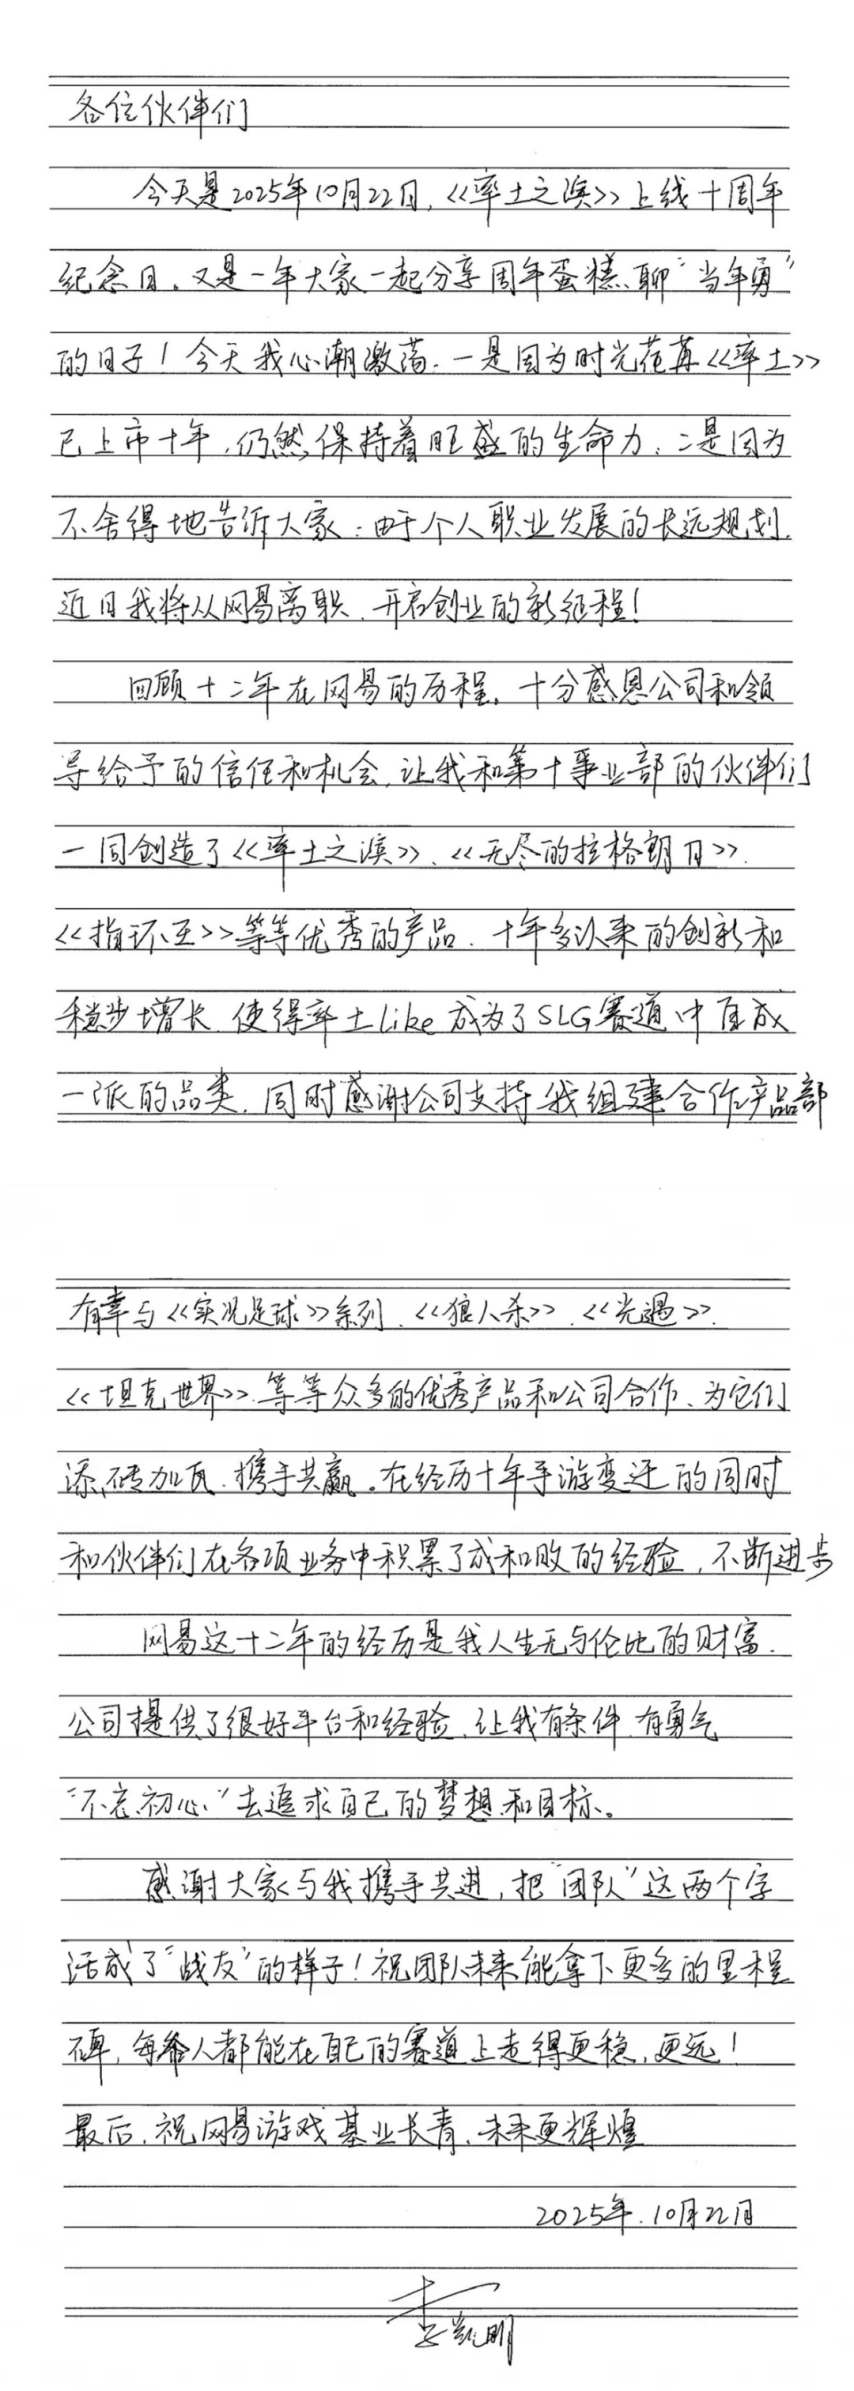 各位伙伴们
今天是2025年10月22日,《率土之滨》上线十周年
纪念日。又是一年大家一起分享周年蛋糕、聊“当年勇”
的日子!今天我心潮激荡.一是因为时光荏苒《率土》
已上市十年,仍然保持着旺盛的生命力;二是因为
不舍得地告诉大家:由于个人职业发展的长远规划.
近日我将从网易离职.开启创业的新征程!
回顾十二年在网易的历程.十分感恩公司和领
导给予的信任和机会.让我和第十事业部的伙伴们
一同创造了《率土之滨》、《无尽的拉格朗日》.
《指环王》等等优秀的产品.十年多以来的创新和
稳步增长.使得率土like成为了SLG赛道中自成
一派的品类.同时感谢公司支持我组建合作产品部
有幸与《实况足球》系列.《狼人杀》.《光遇》.
《坦克世界》等等众多的优秀产品和公司合作、为它们
添砖加瓦.携手共赢。在经历十年手游变迁的同时
和伙伴们在各项业务中积累了成和败的经验,不断进步
网易这十二年的经历是我人生无与伦比的财富.
公司提供了很好平台和经验,让我有条件.有勇气
“不忘初心”去追求自己的梦想和目标。
感谢大家与我携手共进,把“团队”这两个字
活成了“战友”的样子!祝团队未来能拿下更多的里程
碑,每个人都能在自己的赛道上走得更稳,更远!
最后.祝网易游戏基业长青.未来更辉煌
2025年.10月22日
李凯明